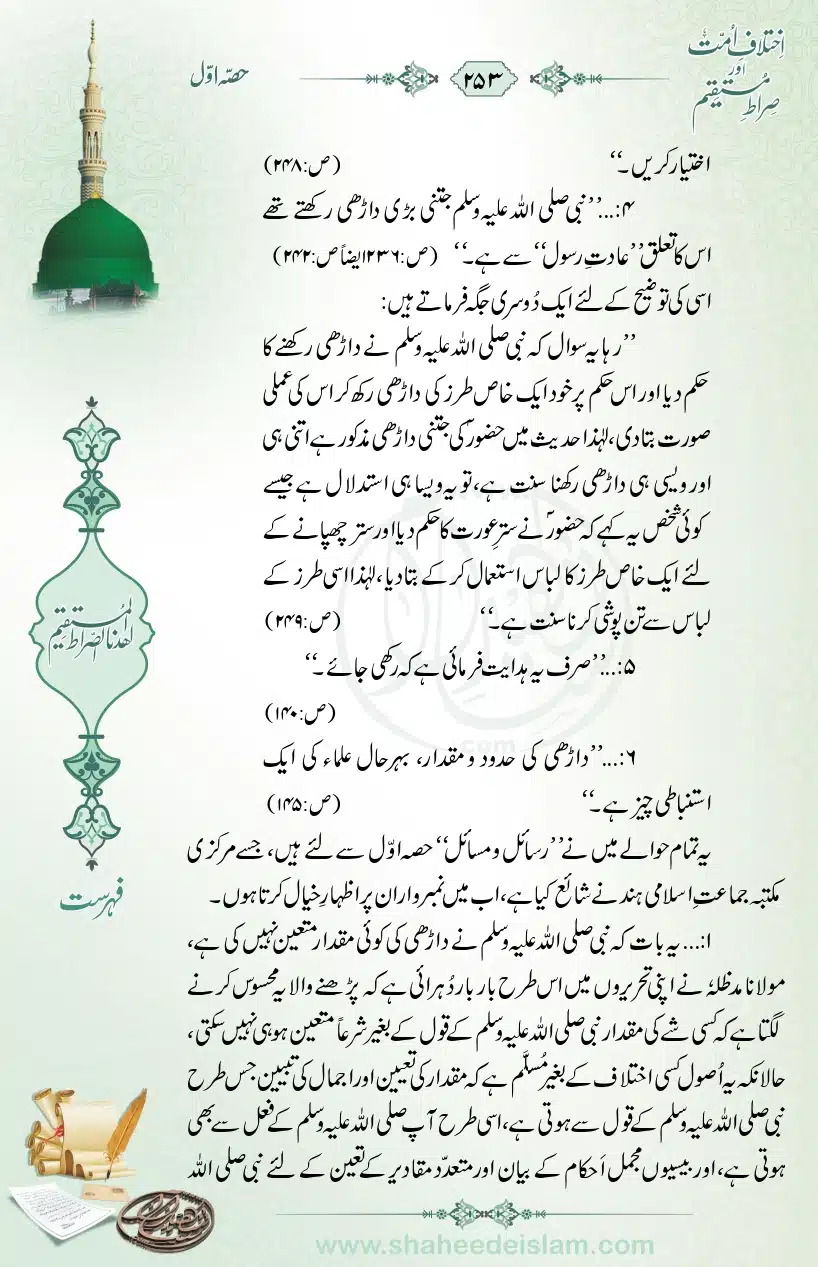 اِختلافِ اُمّت
اور
صِراطِ مُستقیم
۲۵۳
حصّہ اوّل
اختیار کریں۔‘‘ (ص:۲۴۸)
۴:…’’نبی صلی اللہ علیہ وسلم جتنی بڑی داڑھی رکھتے تھے
اس کا تعلق ’’عادتِ رسول‘‘ سے ہے۔‘‘ (ص:۲۳۶ ایضاً ص:۲۴۲)
اسی کی توضیح کے لئے ایک دُوسری جگہ فرماتے ہیں:
’’رہا یہ سوال کہ نبی صلی اللہ علیہ وسلم نے داڑھی رکھنے کا
حکم دیا اور اس حکم پر خود ایک خاص طرز کی داڑھی رکھ کر اس کی عملی
صورت بتادی، لہٰذا حدیث میں حضورؐ کی جتنی داڑھی مذکور ہے اتنی ہی
اور ویسی ہی داڑھی رکھنا سنت ہے، تو یہ ویسا ہی استدلال ہے جیسے
کوئی شخص یہ کہے کہ حضورؐ نے سترِ عورت کا حکم دیا اور ستر چھپانے کے
لئے ایک خاص طرز کا لباس استعمال کر کے بتادیا، لہٰذا اسی طرز کے
لباس سے تن پوشی کرنا سنت ہے۔‘‘ (ص:۲۴۹)
۵:…’’صرف یہ ہدایت فرمائی ہے کہ رکھی جائے۔‘‘
(ص:۱۴۰)
۶:…’’داڑھی کی حدود و مقدار، بہرحال علماء کی ایک
استنباطی چیز ہے۔‘‘ (ص:۱۴۵)
یہ تمام حوالے میں نے ’’رسائل و مسائل‘‘ حصہ اوّل سے لئے ہیں، جسے مرکزی
مکتبہ جماعتِ اسلامی ہند نے شائع کیا ہے، اب میں نمبروار ان پر اظہارِ خیال کرتا ہوں۔
۱:… یہ بات کہ نبی صلی اللہ علیہ وسلم نے داڑھی کی کوئی مقدار متعین نہیں کی ہے،
مولانا مدظلہٗ نے اپنی تحریروں میں اس طرح بار بار دُہرائی ہے کہ پڑھنے والا یہ محسوس کرنے
لگتا ہے کہ کسی شے کی مقدار نبی صلی اللہ علیہ وسلم کے قول کے بغیر شرعاً متعین ہو ہی نہیں سکتی،
حالانکہ یہ اُصول کسی اختلاف کے بغیر مُسلَّم ہے کہ مقدار کی تعیین اور اجمال کی تبیین جس طرح
نبی صلی اللہ علیہ وسلم کے قول سے ہوتی ہے، اسی طرح آپ صلی اللہ علیہ وسلم کے فعل سے بھی
ہوتی ہے، اور بیسیوں مجمل اَحکام کے بیان اور متعدّد مقادیر کے تعین کے لئے نبی صلی اللہ
اھدنا الصراط المستقیم
فہرست
www.shaheedeislam.com